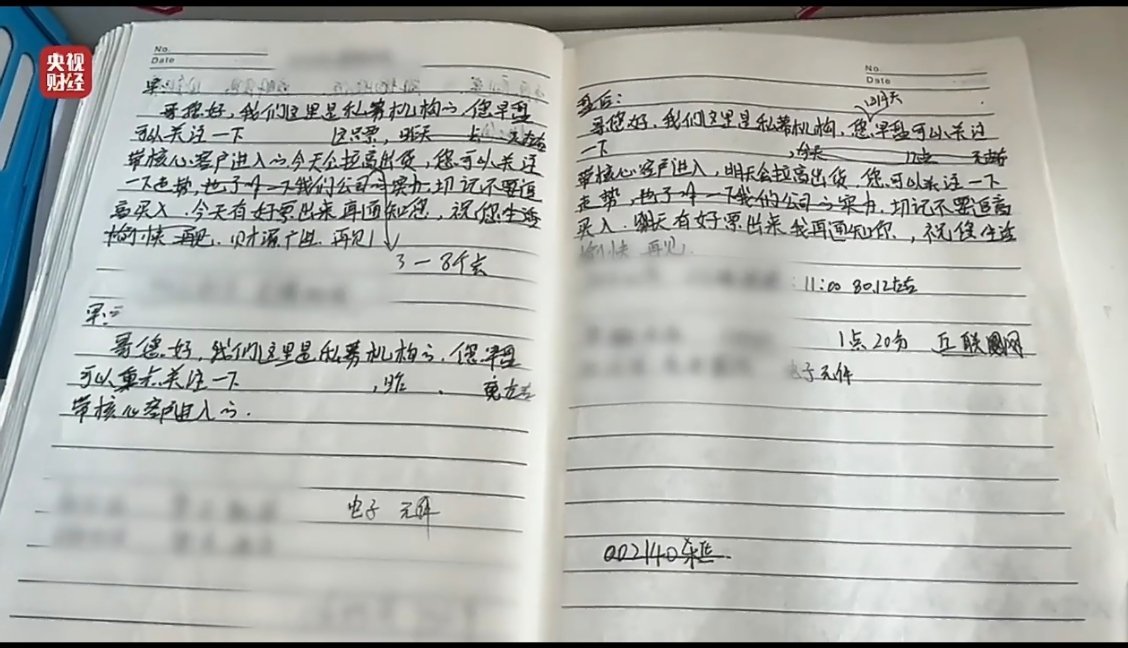 央视
财经
No.
Date
哥您好,我们这里是私募机构的,您早盘
可以关注一下 这只票,昨天 点 元左右
带核心客户进入的今天会拉高出货,您可以关注
一下走势,也了解一下我们公司的实力,切记不要追
高买入.今天有好票出来再通知您,祝您生活
愉快 再见.财源广进.再见!
3-8个点
哥您好,我们这里是私募机构的.您早盘
可以重点关注一下 ,昨
带核心客户进入的.
电子 元件
No.
Date
盘后:
明天
哥您好,我们这里是私募机构,您早盘可以关注
一下 ,今天 点 元左右
带核心客户进入,明天会拉高出货.您可以关注一下
走势,也了解一下我们公司的实力.切记不要追高
买入.明天有好票出来我再通知你,祝您生活
愉快 再见.
11:00 80.12左右
1点20分 互联网
电子元件
002140东